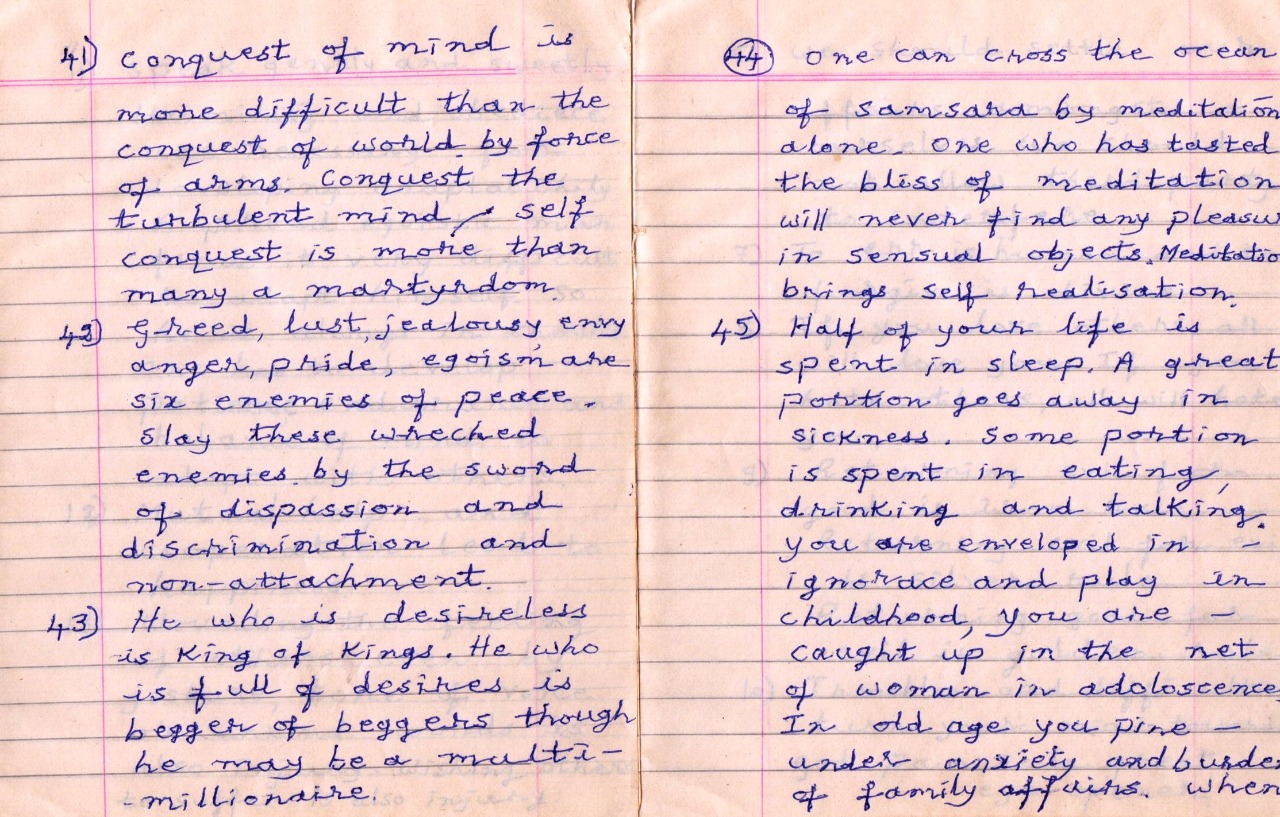 41) Conquest of mind is
more difficult than the
conquest of world by force
of arms. Conquest the
turbulent mind, self
conquest is more than
many a martyrdom.
42) Greed, lust, jealousy, envy
anger, pride, egoism are
six enemies of peace.
Slay these wreched
enemies by the sword
of dispassion and
discrimination and
non-attachment.
43) He who is desireless
is King of Kings. He who
is full of desires is
begger of beggers though
he may be a multi-
-millionaire.
44) One can cross the ocean
of samsara by meditation
alone. One who has tasted
the bliss of meditation
will never find any pleasu
in sensual objects. Meditatio
brings self realisation.
45) Half of your life is
spent in sleep. A great
portion goes away in
sickness. Some portion
is spent in eating,
drinking and talking.
You are enveloped in -
ignorace and play in
childhood, you are -
caught up in the net
of woman in adoloscence
In old age you pine -
under anxiety and burde
of family affairs. when